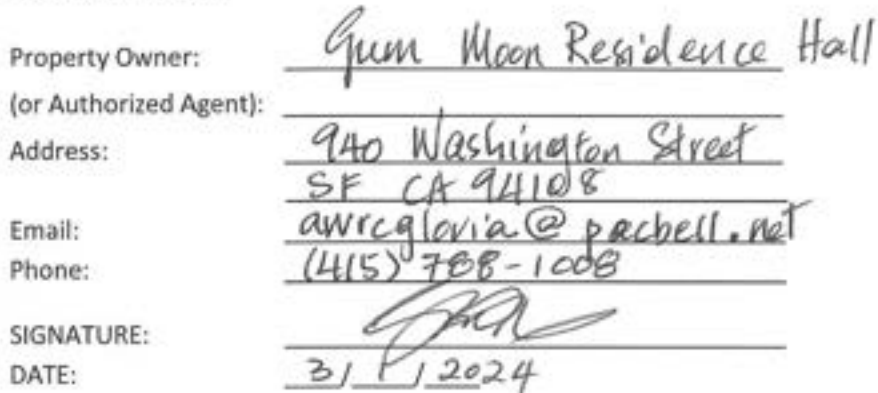 Property Owner: Gum Moon Residence Hall
(or Authorized Agent):
Address: 940 Washington Street
SF CA 94108
Email: awrcgloria@pacbell.net
Phone: (415) 788-1008
SIGNATURE:
DATE: 3/1/2024